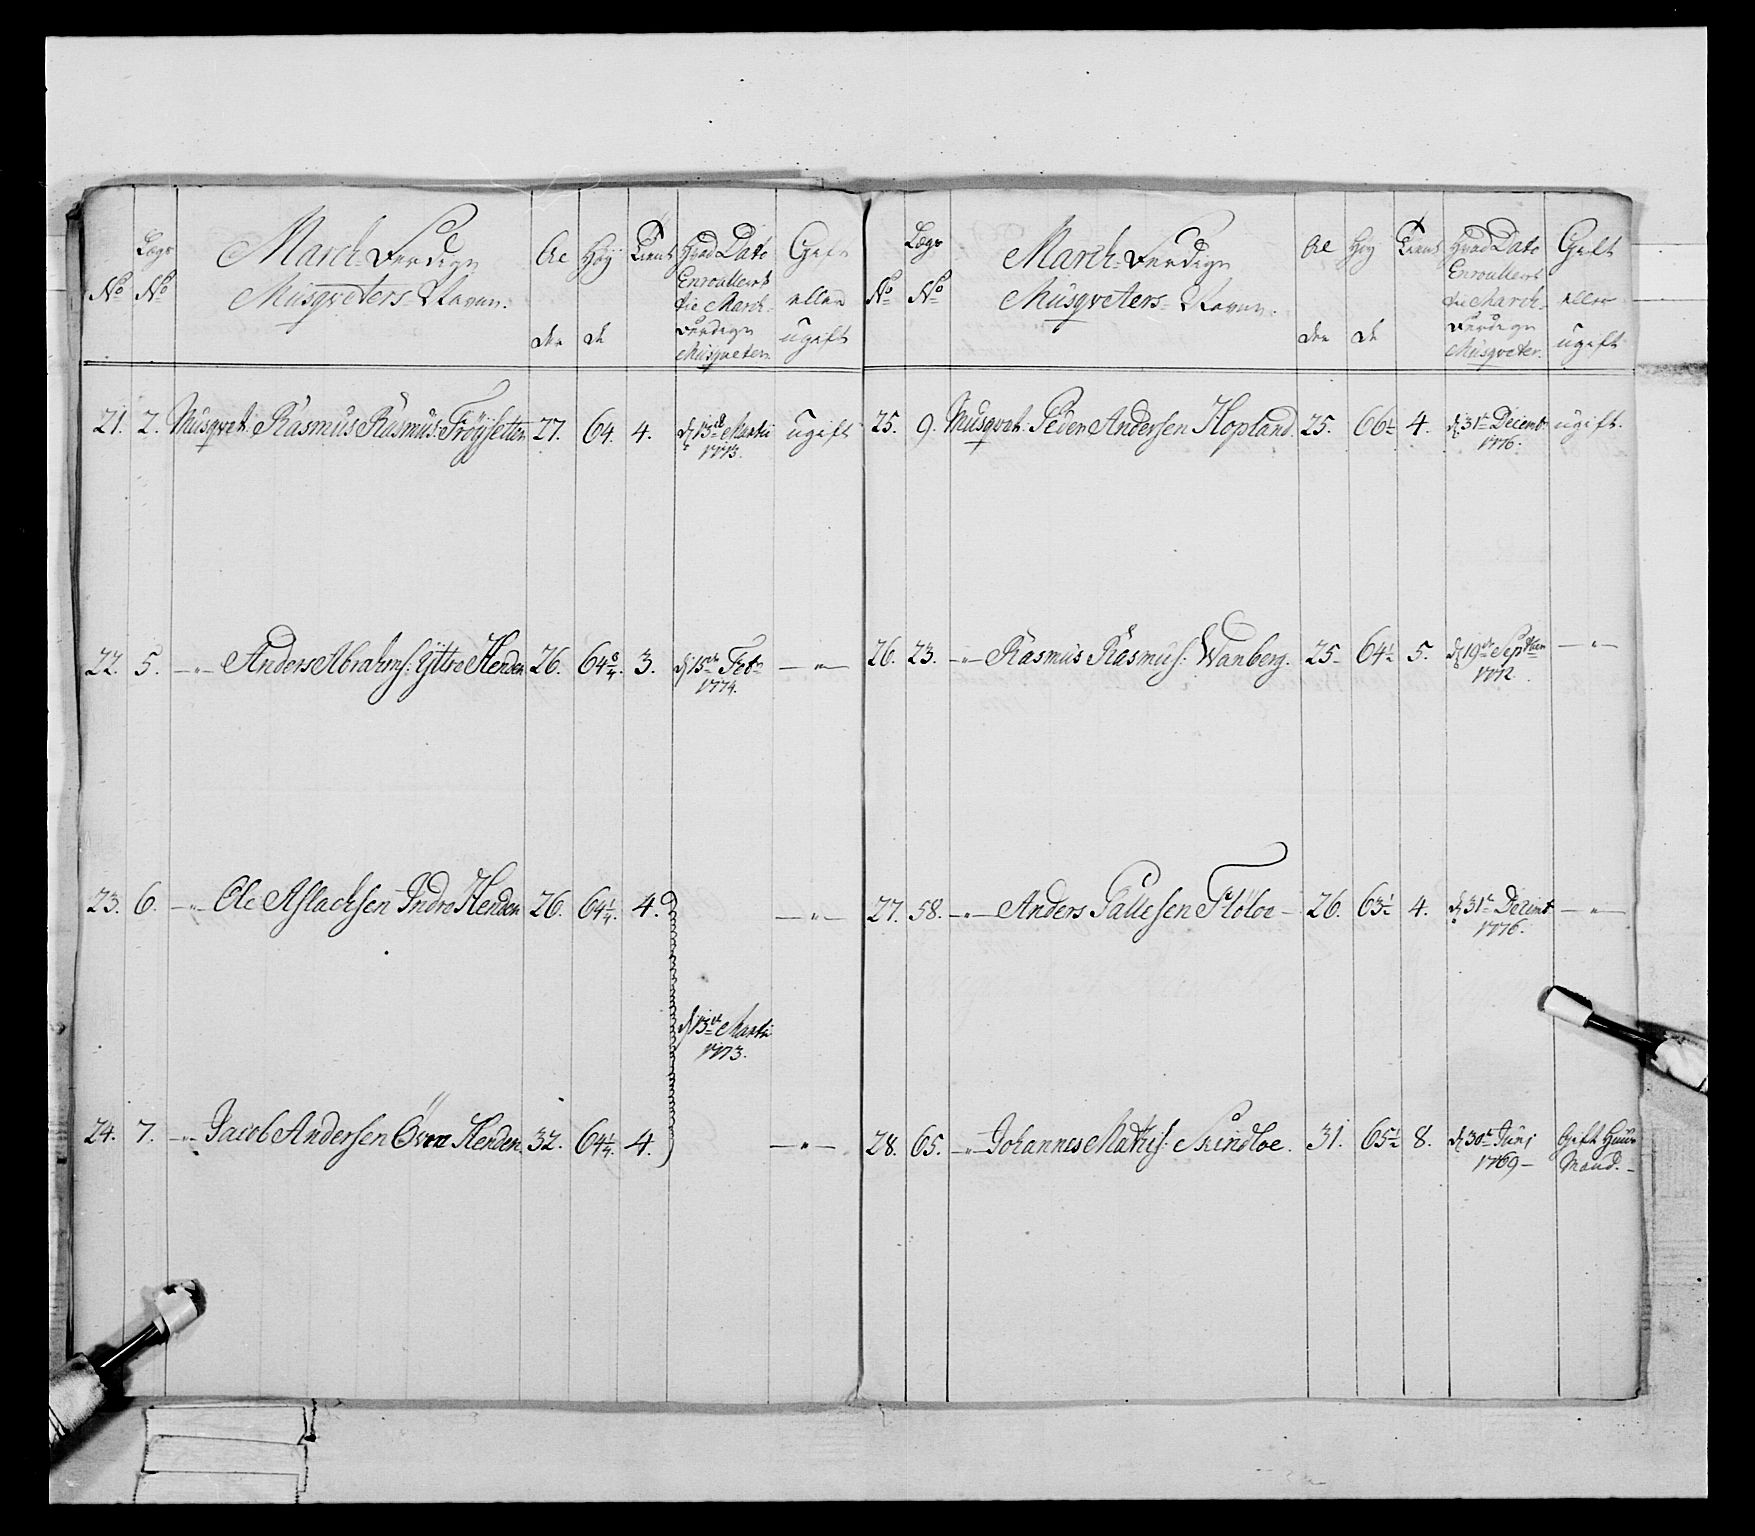 No Lægs No March-Færdige Musqveters Navn: Alder Høyde Tient Hvad Dato Enroullert til March-Færdige Musqveter. Gift eller ugift
21. 2. Musqvet: Rasmus Rasmus: Tröysetter 27. 64. 4. d. 13de Martii 1773. ugift
22. 5. —„— Anders Abrahms: Ÿttre Henden 26. 64 3. d. 15de Feb: 1774. —„—
23. 6. —„— Ole Aslachsen Indre Henden 26. 64¼. 4. —„—
d. 13de Martii 1773.
24. 7. —„— Jacob Andersen Övre Henden. 32. 64¼. 4. —„—
No Lægs No March-Færdige Musqveters Navn. Alder Høyde Tient Hvad Dato Enroullert til March-Færdige Musqveter. Gift eller ugift
25. 9. Musqvet: Peder Andersen Hopland. 25. 66½ 4. d. 31te Decemb: 1776. ugift.
26. 23. —„— Rasmus Rasmus: Wanberg. 25. 64½ 5. d. 19de Septem 1772. —„—
27. 58. —„— Anders Pallesen Floloe 26. 63½ 4. d. 31te Decemb 1776. —„—
28. 65. —„— Johannes Mathis: Skindloe. 31. 65½ 8. d. 30te Junj 1769 Gift Huus Mand.